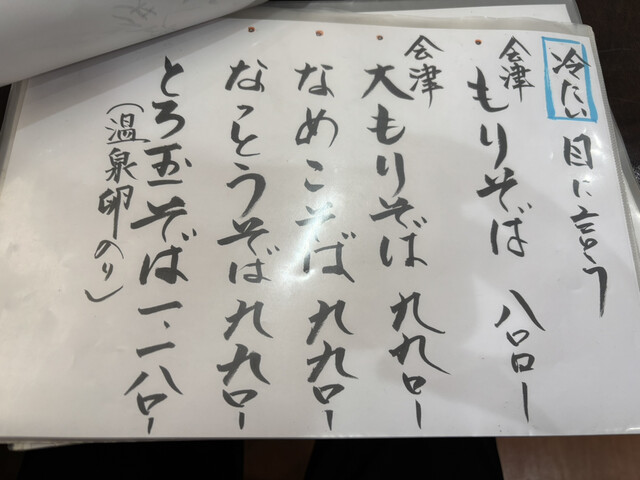 冷たい
会津 もりそば 八〇〇ー
会津 大もりそば 九九〇ー
なめこそば 九九〇ー
なっとうそば 九九〇ー
とろ玉そば 一、一八〇ー
(温泉卵のり)